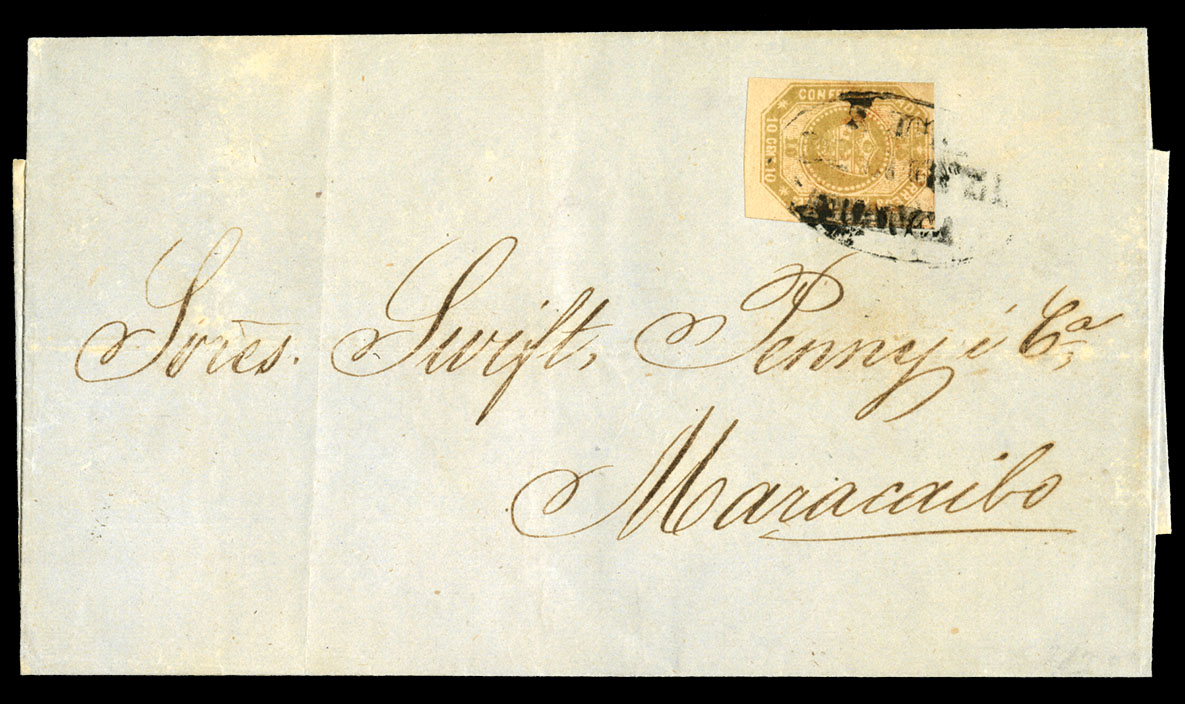 CONFE
10 CEN. 10
10
Sores. Swift, Penny i Ca,
Maracaibo